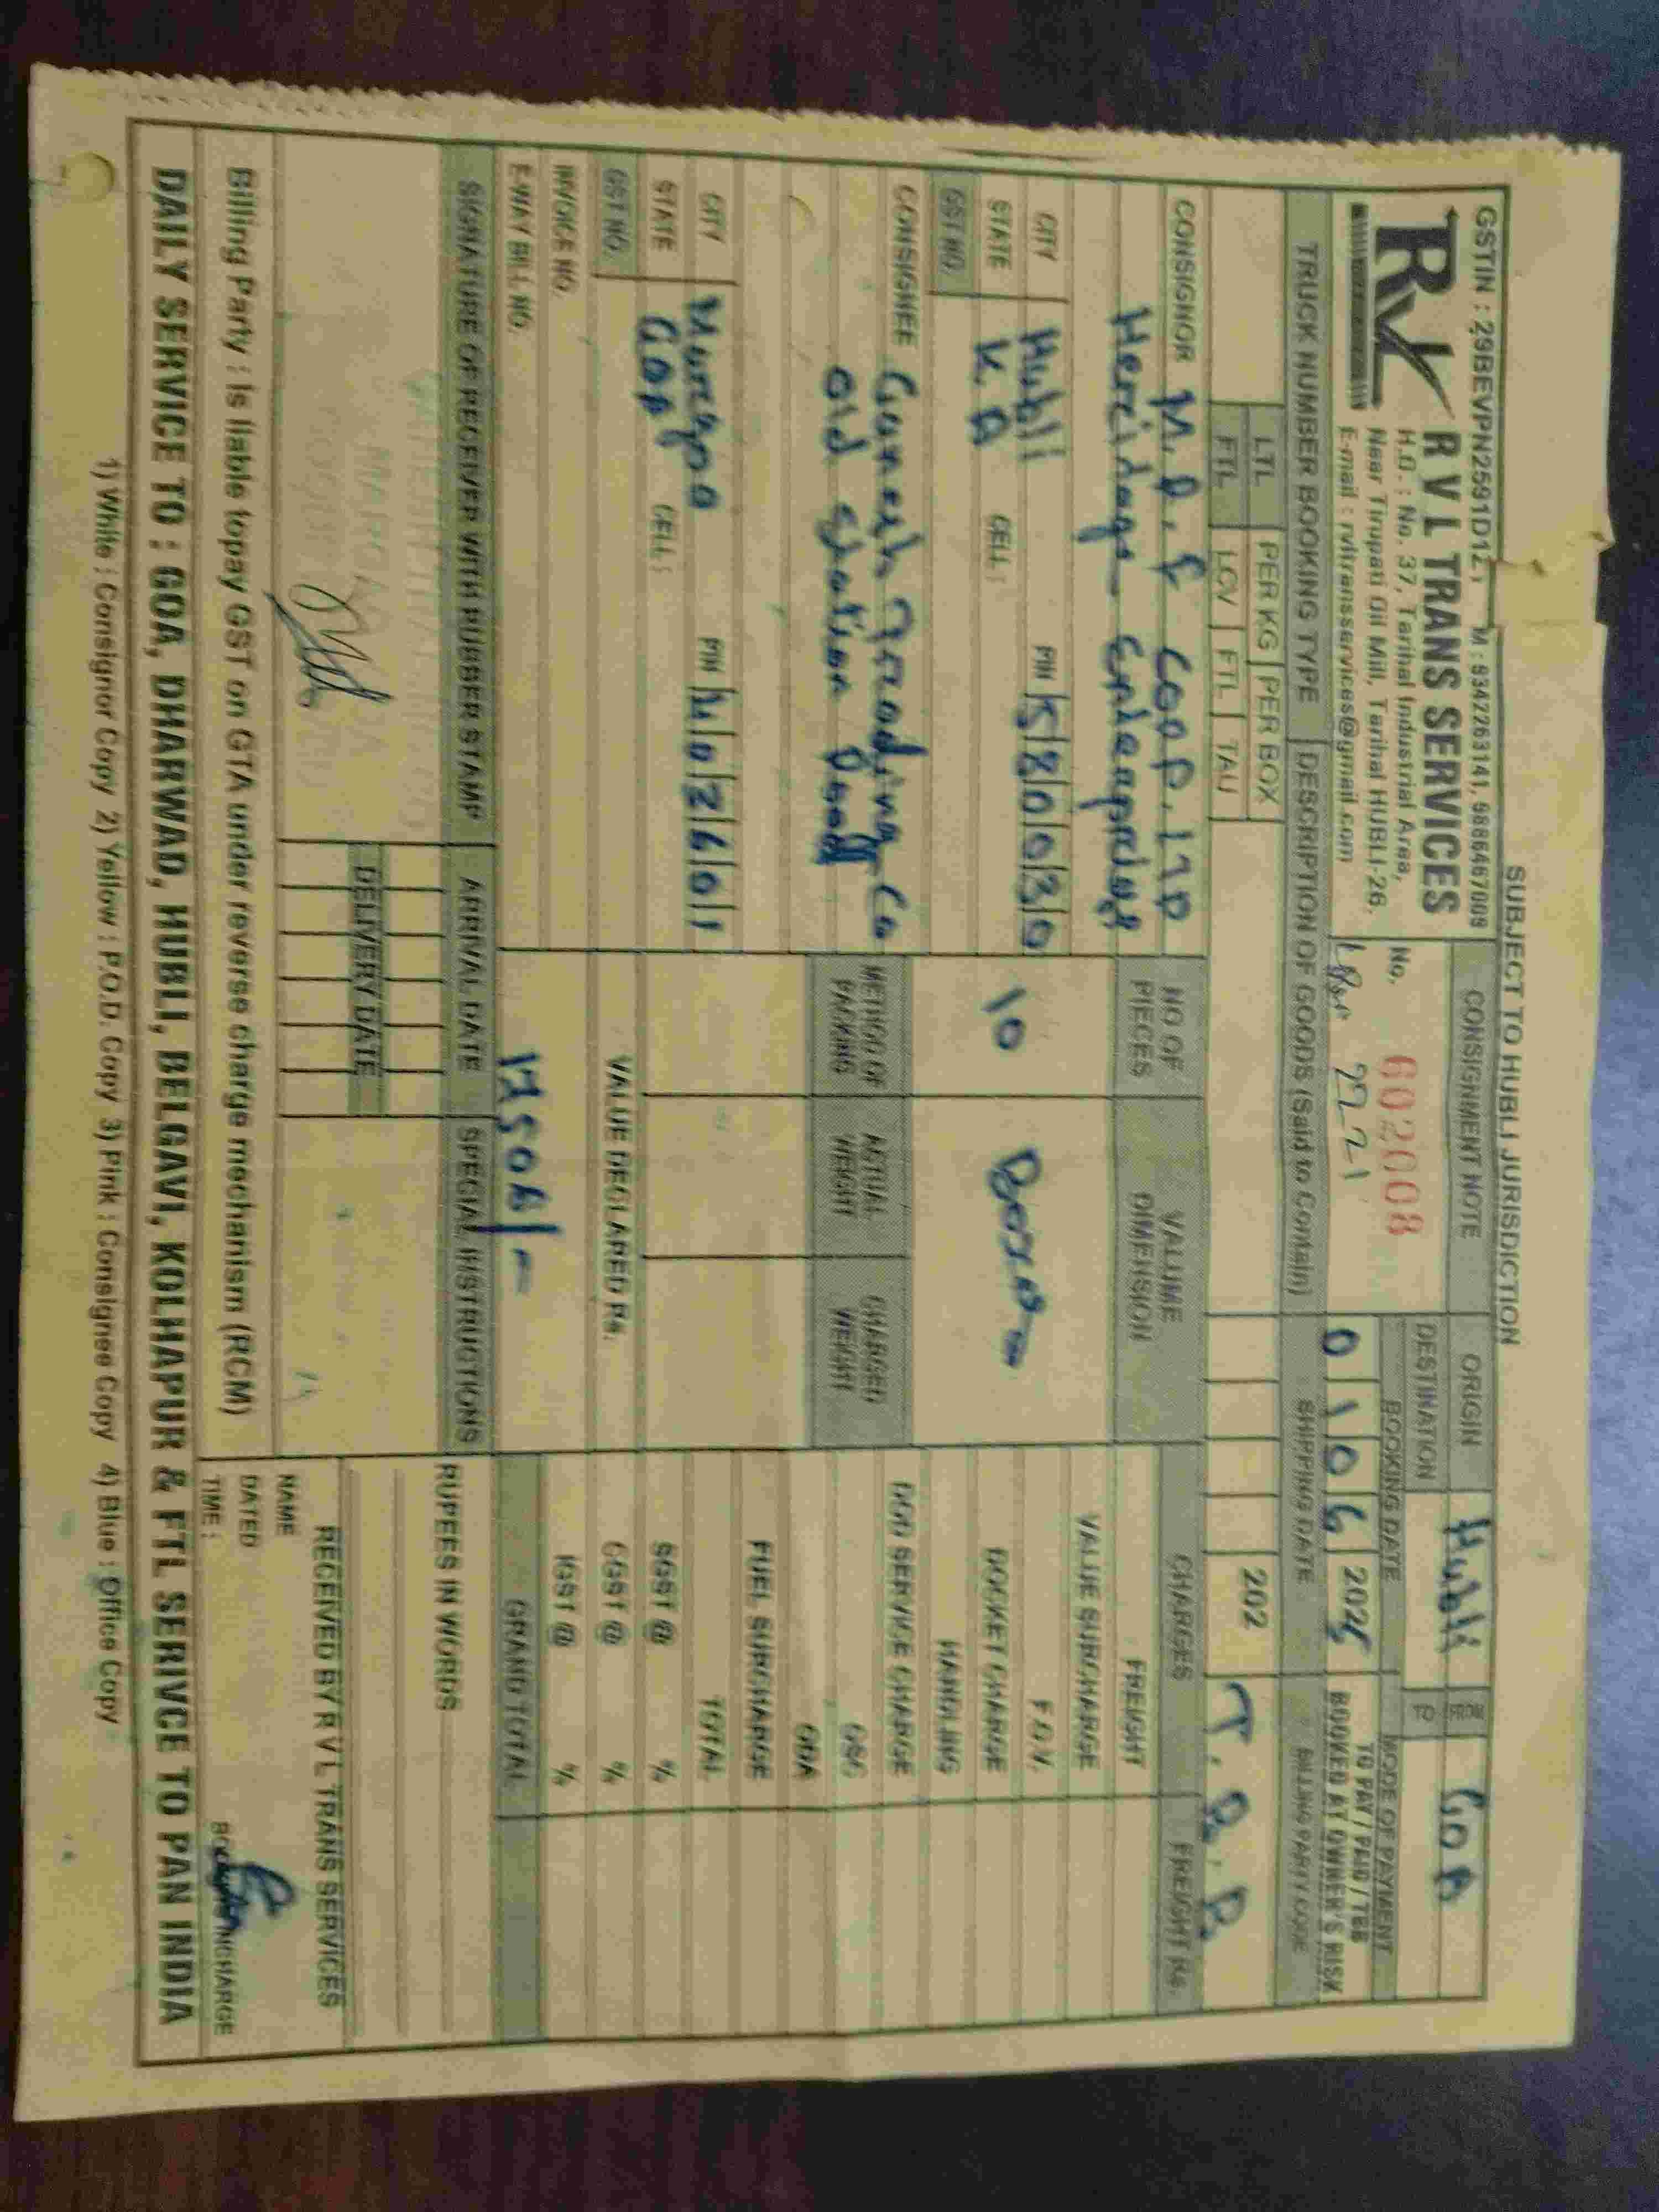 SUBJECT TO HUBLI JURISDICTION
GSTIN : 29BEVPN2591D1Z M : 9347263141, 9886467009
RVL
R V L TRANS SERVICES
H.O. : No. 37, Tarihal Industrial Area,
Near Tirupati Oil Mill, Tarihal HUBLI-26.
E-mail : rvltransservices@gmail.com
CONSIGNMENT NOTE
No. 602008
2221
ORIGIN Hubli FROM GOA
DESTINATION TO
BOOKING DATE MODE OF PAYMENT
0 1 0 6 2025 TO PAY / PAID / TBB
BOOKED AT OWNER'S RISK
TRUCK NUMBER BOOKING TYPE DESCRIPTION OF GOODS (Said to Contain) SHIPPING DATE BILLING PARTY CODE
LTL PER KG PER BOX 202 T.B.B.
FTL LCV FTL TAU
CONSIGNOR M.D.F COOP. LTD NO OF PIECES VALUME DIMENSION CHARGES FREIGHT Rs.
Hereidage Enterprise FREIGHT
VALUE SURCHARGE
CITY Hubli PIN 580030 10 Boxes F.O.V.
STATE K.A CELL : DOCKET CHARGE
GST NO. HANDLING
CONSIGNEE Ganesh Treading Co METHOD OF PACKING ACTUAL WEIGHT CHARGED WEIGHT DOD SERVICE CHARGE
old station Road
ODA
FUEL SURCHARGE
CITY Margao PIN 402601 TOTAL
STATE GOA CELL : SGST @ %
GST NO. VALUE DECLARED Rs. CGST @ %
INVOICE NO. IGST @ %
E-WAY BILL NO. GRAND TOTAL
SIGNATURE OF RECEIVER WITH RUBBER STAMP ARRIVAL DATE SPECIAL INSTRUCTIONS RUPEES IN WORDS
DELIVERY DATE
RECEIVED BY R V L TRANS SERVICES
NAME
DATED
TIME : INCHARGE
Billing Party : Is liable topay GST on GTA under reverse charge mechanism (RCM)
DAILY SERVICE TO : GOA, DHARWAD, HUBLI, BELGAVI, KOLHAPUR & FTL SERIVCE TO PAN INDIA
1) White : Consignor Copy 2) Yellow : P.O.D. Copy 3) Pink : Consignee Copy 4) Blue : Office Copy